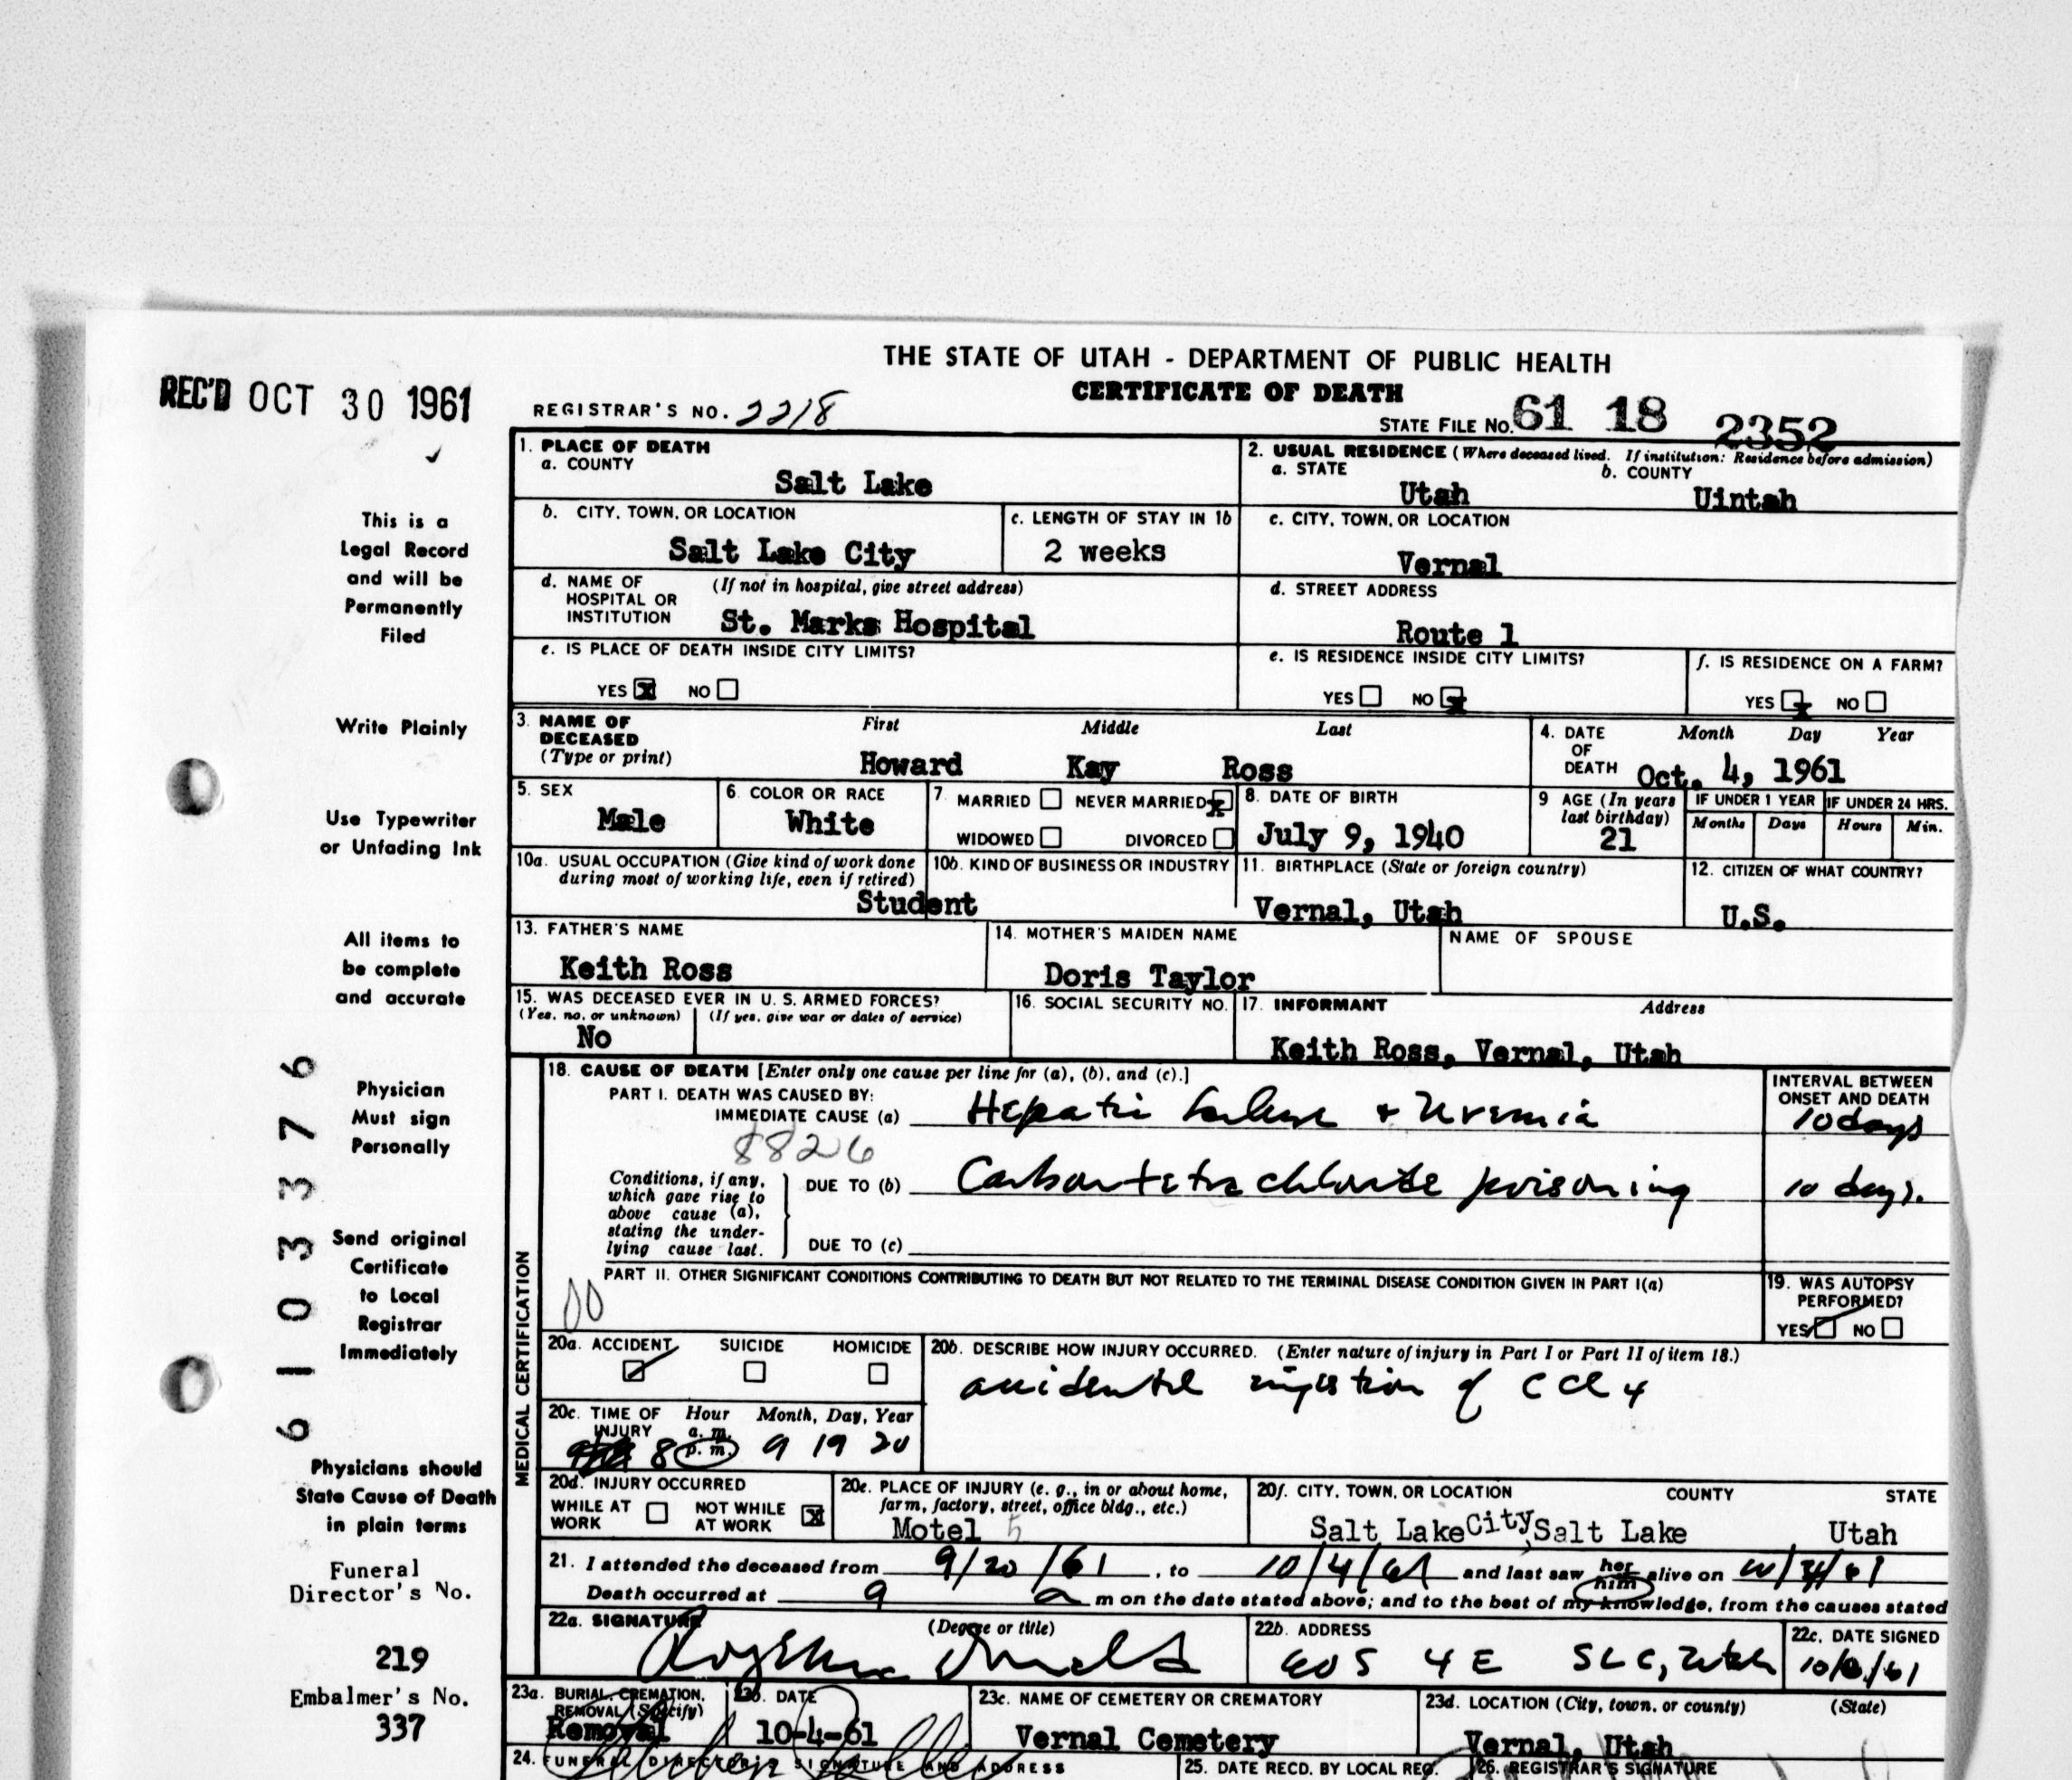 THE STATE OF UTAH - DEPARTMENT OF PUBLIC HEALTH
CERTIFICATE OF DEATH
REC'D OCT 30 1961
REGISTRAR'S NO. 2218
STATE FILE NO. 61 18 2352
1. PLACE OF DEATH
a. COUNTY
Salt Lake
2. USUAL RESIDENCE (Where deceased lived. If institution: Residence before admission)
a. STATE b. COUNTY
Utah Uintah
b. CITY, TOWN, OR LOCATION
Salt Lake City
c. LENGTH OF STAY IN 1b
2 weeks
c. CITY, TOWN, OR LOCATION
Vernal
d. NAME OF HOSPITAL OR INSTITUTION (If not in hospital, give street address)
St. Marks Hospital
d. STREET ADDRESS
Route 1
e. IS PLACE OF DEATH INSIDE CITY LIMITS?
YES X NO
e. IS RESIDENCE INSIDE CITY LIMITS?
YES NO X
f. IS RESIDENCE ON A FARM?
YES X NO
3. NAME OF DECEASED (Type or print)
First Middle Last
Howard Kay Ross
4. DATE OF DEATH Month Day Year
Oct. 4, 1961
5. SEX
Male
6. COLOR OR RACE
White
7. MARRIED NEVER MARRIED X
WIDOWED DIVORCED
8. DATE OF BIRTH
July 9, 1940
9 AGE (In years last birthday)
21
IF UNDER 1 YEAR IF UNDER 24 HRS.
Months Days Hours Min.
10a. USUAL OCCUPATION (Give kind of work done during most of working life, even if retired)
10b. KIND OF BUSINESS OR INDUSTRY
Student
11. BIRTHPLACE (State or foreign country)
Vernal, Utah
12. CITIZEN OF WHAT COUNTRY?
U.S.
13. FATHER'S NAME
Keith Ross
14. MOTHER'S MAIDEN NAME
Doris Taylor
NAME OF SPOUSE
15. WAS DECEASED EVER IN U. S. ARMED FORCES?
(Yes, no, or unknown) (If yes, give war or dates of service)
No
16. SOCIAL SECURITY NO.
17. INFORMANT Address
Keith Ross, Vernal, Utah
MEDICAL CERTIFICATION
18. CAUSE OF DEATH [Enter only one cause per line for (a), (b), and (c).]
PART I. DEATH WAS CAUSED BY:
IMMEDIATE CAUSE (a) Hepatic failure + Uremia
8826
INTERVAL BETWEEN ONSET AND DEATH
10 days
Conditions, if any, which gave rise to above cause (a), stating the underlying cause last.
DUE TO (b) Carbontetrachloride poisoning
10 days.
DUE TO (c)
PART II. OTHER SIGNIFICANT CONDITIONS CONTRIBUTING TO DEATH BUT NOT RELATED TO THE TERMINAL DISEASE CONDITION GIVEN IN PART I(a)
00
19. WAS AUTOPSY PERFORMED?
YES NO
20a. ACCIDENT SUICIDE HOMICIDE
20b. DESCRIBE HOW INJURY OCCURRED. (Enter nature of injury in Part I or Part II of item 18.)
accidental ingestion of CCl4
20c. TIME OF INJURY Hour a. m. p. m. Month, Day, Year
8 9 19 20
20d. INJURY OCCURRED
WHILE AT WORK NOT WHILE AT WORK X
20e. PLACE OF INJURY (e. g., in or about home, farm, factory, street, office bldg., etc.)
Motel 5
20f. CITY, TOWN, OR LOCATION COUNTY STATE
Salt Lake City, Salt Lake Utah
21. I attended the deceased from 9/20/61, to 10/4/61 and last saw her him alive on
Death occurred at 9 a m on the date stated above; and to the best of my knowledge, from the causes stated
22a. SIGNATURE (Degree or title)
22b. ADDRESS
SLC, Utah
22c. DATE SIGNED
23a. BURIAL, CREMATION, REMOVAL (Specify)
Removal
23b. DATE
10-4-61
23c. NAME OF CEMETERY OR CREMATORY
Vernal Cemetery
23d. LOCATION (City, town, or county) (State)
Vernal, Utah
24. FUNERAL DIRECTOR'S SIGNATURE AND ADDRESS
25. DATE RECD. BY LOCAL REG.
26. REGISTRAR'S SIGNATURE
This is a
Legal Record
and will be
Permanently
Filed
Write Plainly
Use Typewriter
or Unfading Ink
All items to
be complete
and accurate
Physician
Must sign
Personally
Send original
Certificate
to Local
Registrar
Immediately
Physicians should
State Cause of Death
in plain terms
Funeral
Director's No.
219
Embalmer's No.
337
6103376